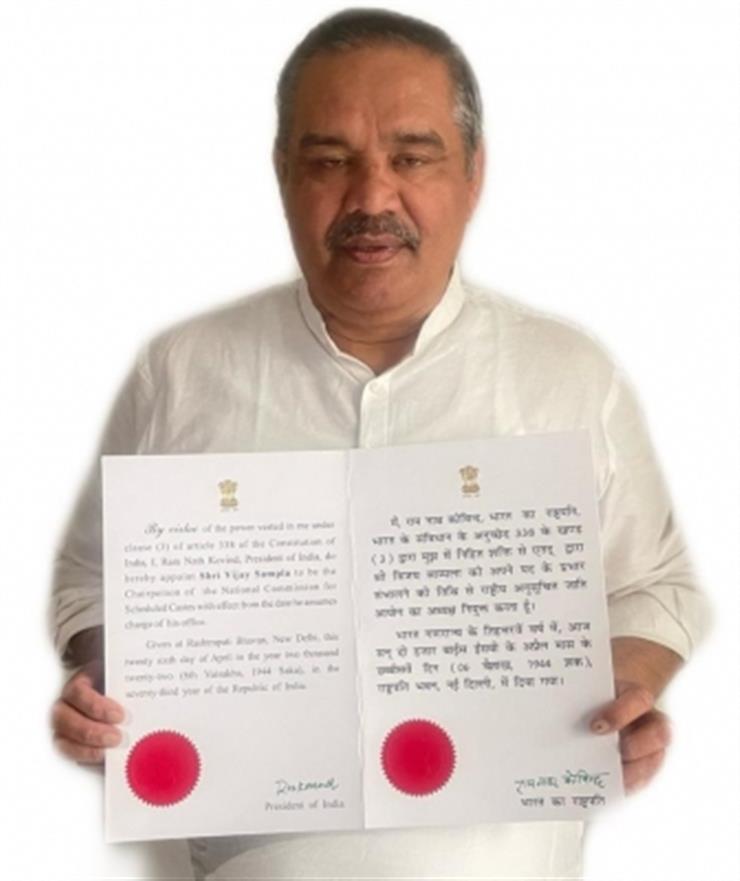 By virtue of the power vested in me under
clause (3) of article 338 of the Constitution of
India, I, Ram Nath Kovind, President of India, do
hereby appoint Shri Vijay Sampla to be the
Chairperson of the National Commission for
Scheduled Castes with effect from the date he assumes
charge of his office.
Given at Rashtrapati Bhavan, New Delhi, this
twenty sixth day of April in the year two thousand
twenty-two (6th Vaisakha, 1944 Saka), in the
seventy-third year of the Republic of India.
President of India
मैं, राम नाथ कोविन्द, भारत का राष्ट्रपति,
भारत के संविधान के अनुच्छेद 338 के खण्ड
(3) द्वारा मुझ में निहित शक्ति से एतद् द्वारा
श्री विजय साम्पला को अपने पद के प्रभार
संभालने की तिथि से राष्ट्रीय अनुसूचित जाति
आयोग का अध्यक्ष नियुक्त करता हूँ।
भारत गणराज्य के तिहत्तरवें वर्ष में, आज
सन् दो हजार बाईस ईसवी के अप्रैल मास के
छब्बीसवें दिन (06 वैशाख, 1944 शक),
राष्ट्रपति भवन, नई दिल्ली, में दिया गया।
राम नाथ कोविन्द
भारत का राष्ट्रपति